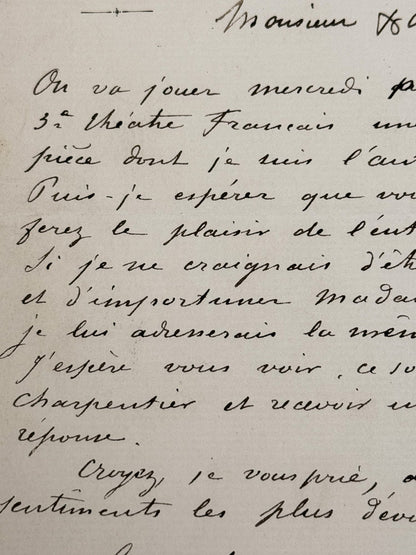 Monsieur &
On va jouer mercredi
3e théâtre Français une
pièce dont je suis l'au
Puis-je espérer que vou
ferez le plaisir de l'ent
Si je ne craignais d'êt
et d'importuner Mada
je lui adresserais la mêm
J'espère vous voir, ce so
Charpentier et recevoir u
réponse.
Croyez, je vous prie, a
sentiments les plus dévo